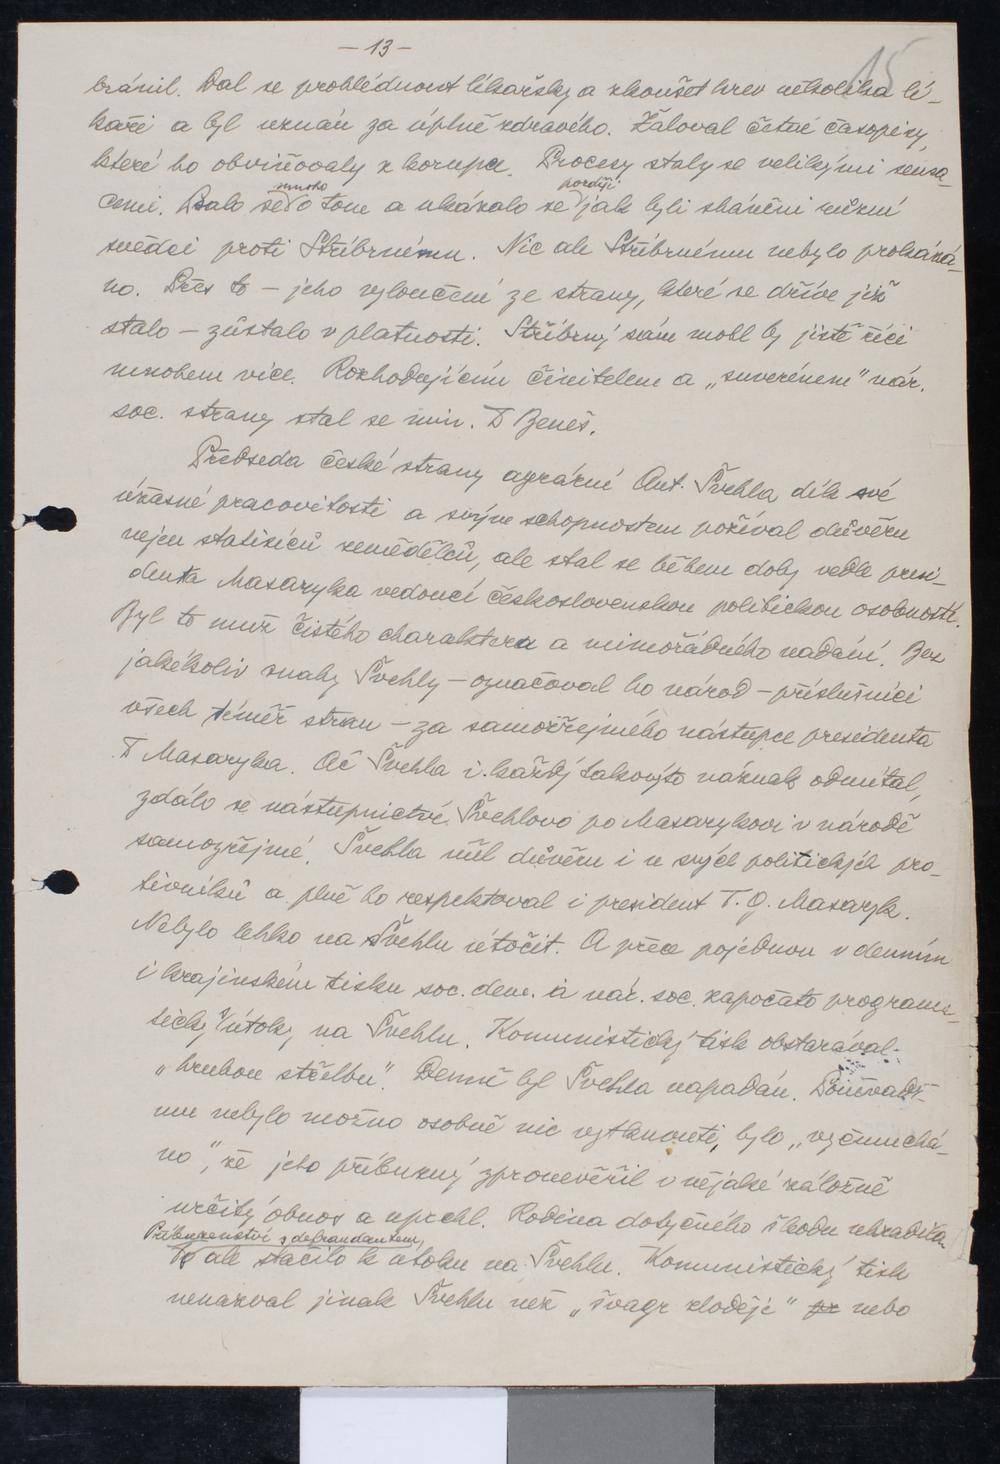 15
- 13 -
bránil. Dal se prohlédnout lékařsky a zkoušet krev několika lé-
kaři a byl uznán za úplně zdravého. Žaloval četné časopisy,
které ho obviňovaly z korupce. Procesy staly se velikými sensa-
cemi. Psalo se mnoho o tom a ukázalo se později jak byli sháněni různí
svědci proti Stříbrnému. Nic ale Stříbrnému nebylo prokázá-
no. Přes to – jeho vyloučení ze strany, které se dříve již
stalo – zůstalo v platnosti. Stříbrný sám mohl by jistě říci
mnohem více. Rozhodujícím činitelem a „suverénem" nár.
soc. strany stal se min. D Beneš.
Předseda české strany agrární Ant. Švehla dík své
úžasné pracovitosti a svým schopnostem požíval důvěru
nejen statisíců zemědělců, ale stal se během doby vedle presi-
denta Masaryka vedoucí československou politickou osobností.
Byl to muž čistého charakteru a mimořádného nadání. Bez
jakékoliv snahy Švehly – označoval ho národ – příslušníci
všech téměř stran – za samozřejmého nástupce presidenta
T Masaryka. Ač Švehla i každý takovýto náznak odmítal,
zdálo se nástupnictví Švehlovo po Masarykovi v národě
samozřejmé. Švehla měl důvěru i u svých politických pro-
tivníků a plně ho respektoval i president T. G. Masaryk.
Nebylo lehko na Švehlu útočit. A přece pojednou v denním
i krajinském tisku soc. dem. a nár. soc. započato programa-
ticky útoky na Švehlu. Komunistický tisk obstarával
„hrubou střelbu". Denně byl Švehla napadán. Poněvadž
mu nebylo možno osobně nic vytknouti, bylo „vyčmuchá-
no", že jeho příbuzný zpronevěřil v nějaké záložně
určitý obnos a uprchl. Rodina dotyčného škodu uhradila.
Příbuzenství z defraudantem,
To ale stačilo k útoku na Švehlu. Komunistický tisk
nenazval jinak Švehlu než „švagr zloděje" nebo